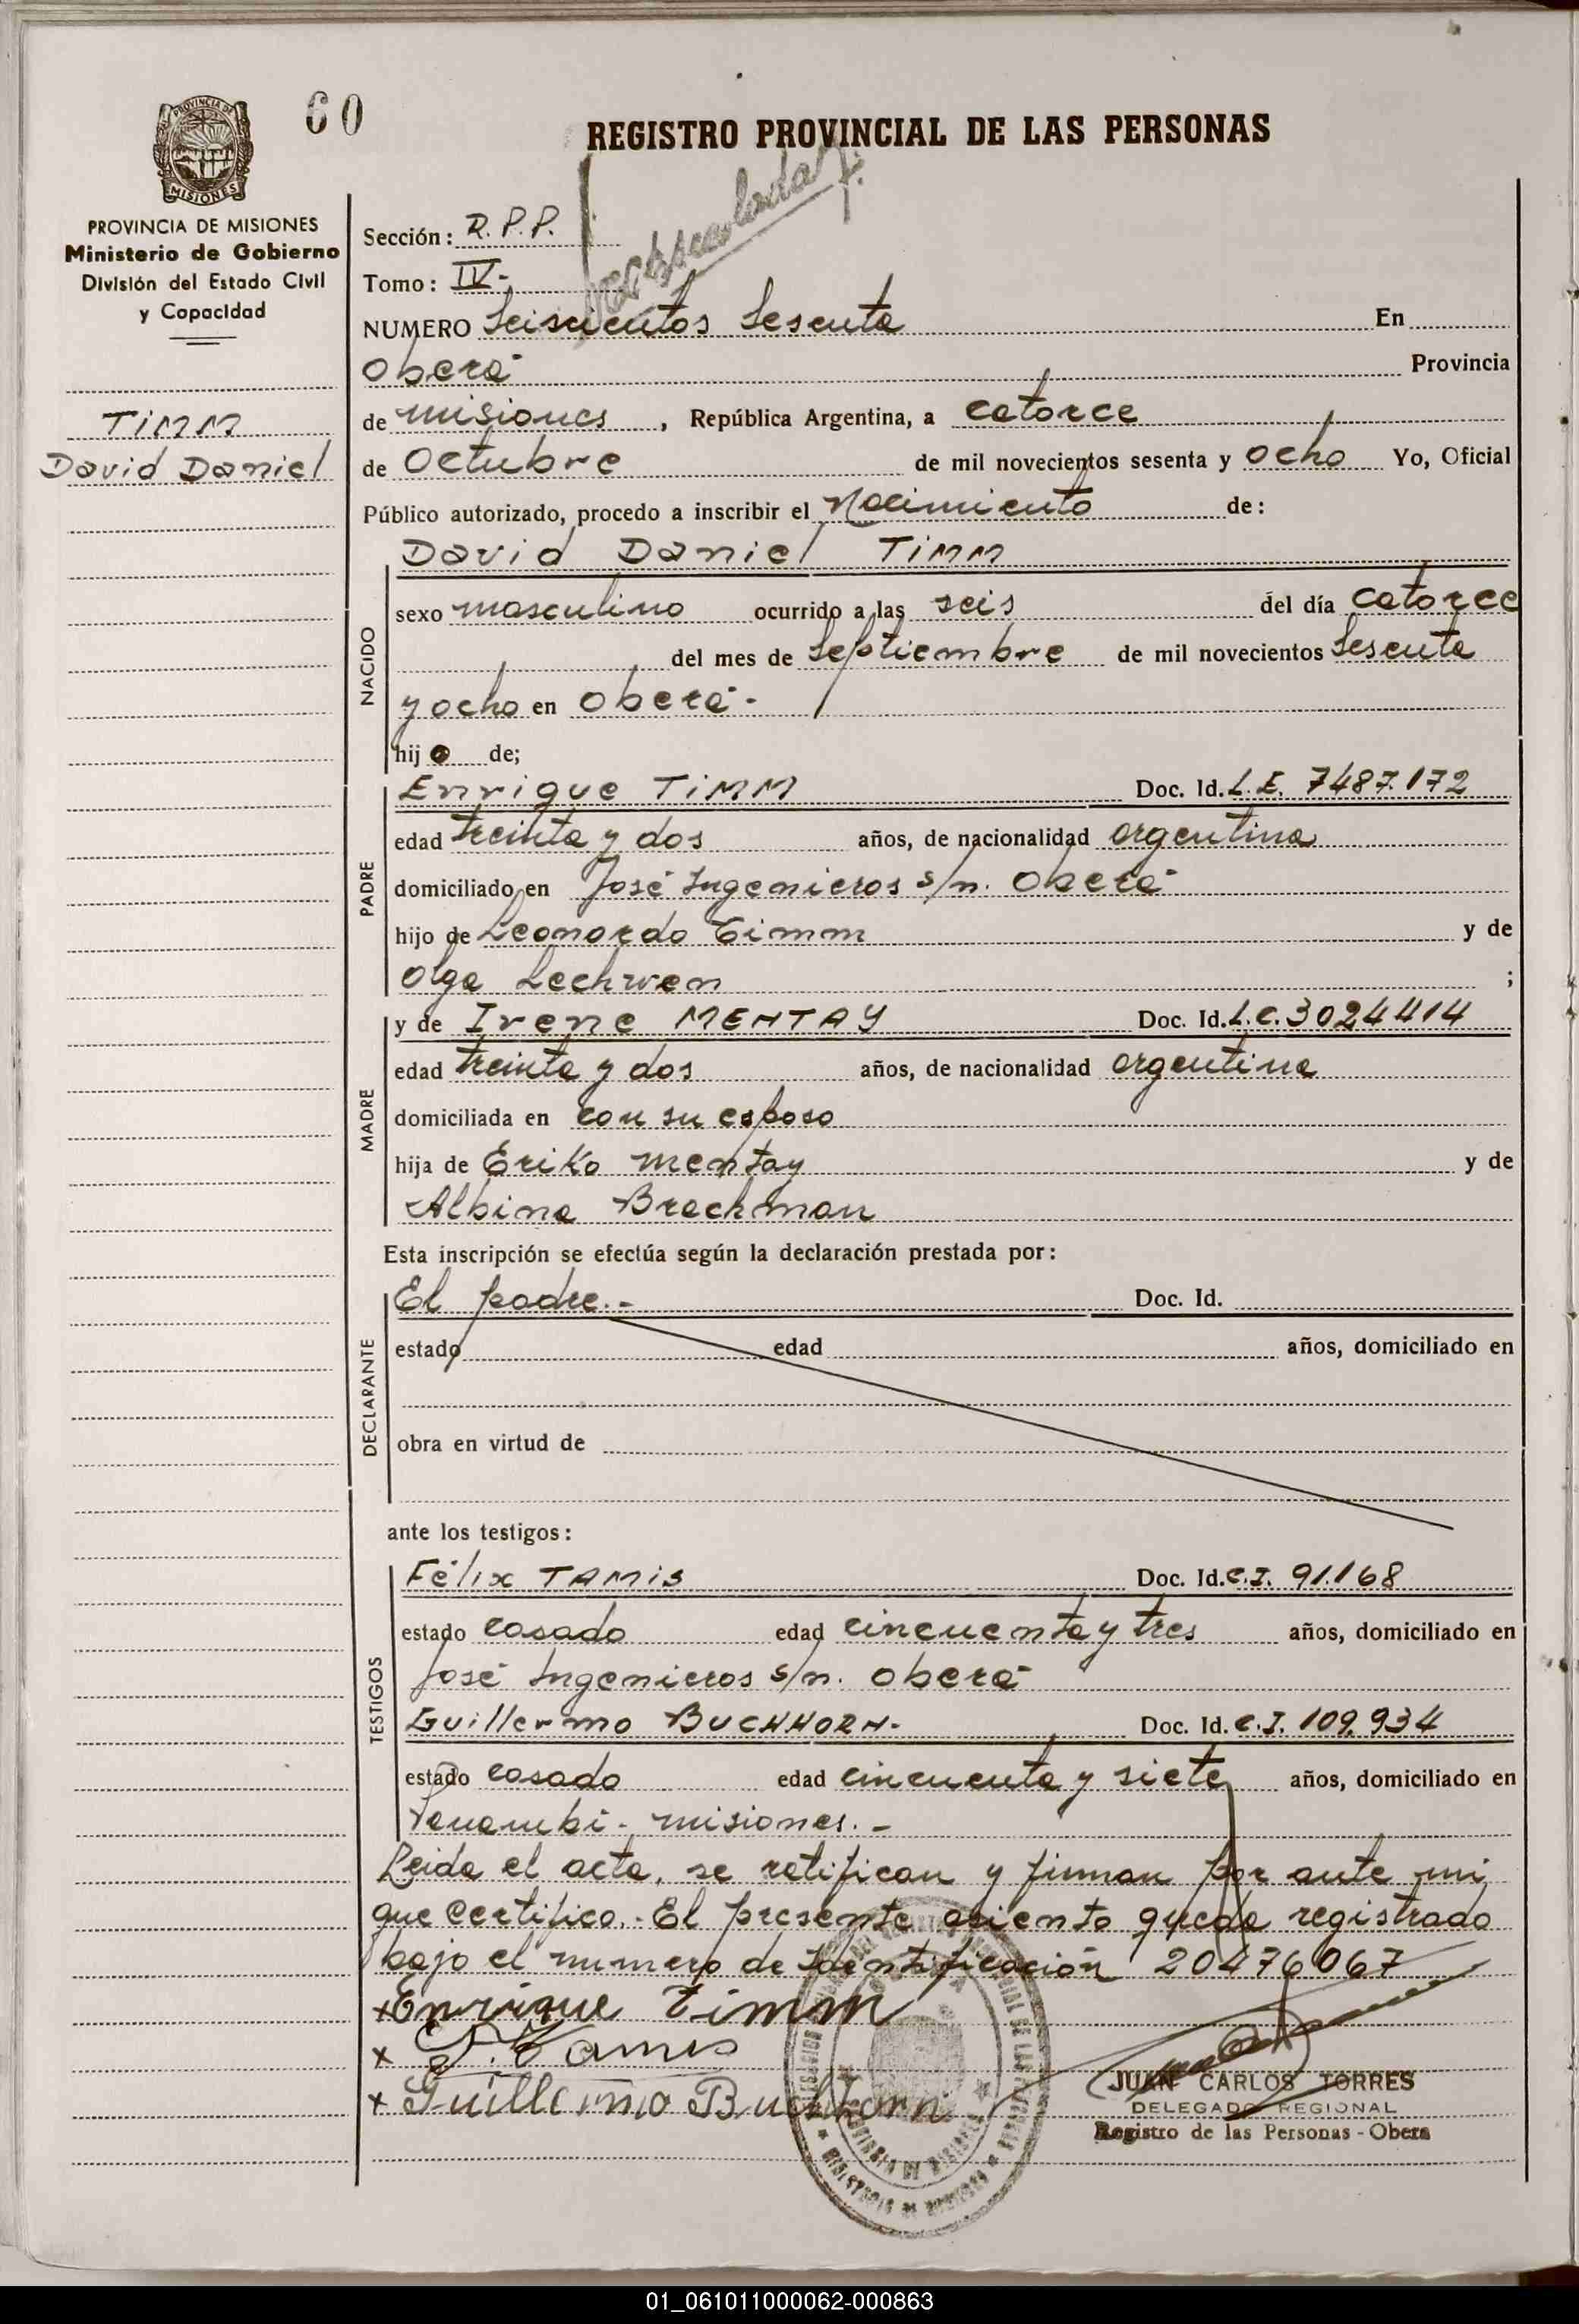 60
REGISTRO PROVINCIAL DE LAS PERSONAS
PROVINCIA DE MISIONES
Ministerio de Gobierno
División del Estado Civil
y Capacidad
TIMM
David Daniel
Sección: R.P.P.
Tomo: IV-
NUMERO Seiscientos Sesenta En
Oberá
Provincia
de Misiones, República Argentina, a catorce
de Octubre de mil novecientos sesenta y ocho Yo, Oficial
Público autorizado, procedo a inscribir el Nacimiento de:
David Daniel TIMM
NACIDO
sexo masculino ocurrido a las seis del día catorce
del mes de Septiembre de mil novecientos sesenta
y ocho en Oberá-
hijo de;
PADRE
Enrique TIMM Doc. Id. L.E. 7487.172
edad treinta y dos años, de nacionalidad argentina
domiciliado en José Ingenieros s/n. Oberá
hijo de Leonardo Timm y de
Olga Lechwen ;
MADRE
y de Irene MENTAY Doc. Id. L.C. 3024414
edad treinta y dos años, de nacionalidad argentina
domiciliada en con su esposo
hija de Eriko Mentay y de
Albina Brechman
Esta inscripción se efectúa según la declaración prestada por:
DECLARANTE
El padre.- Doc. Id.
estado edad años, domiciliado en
obra en virtud de
ante los testigos:
TESTIGOS
Félix TAMIS Doc. Id. C.I. 91.168
estado casado edad cincuenta y tres años, domiciliado en
José Ingenieros s/n. Oberá
Guillermo BUCHHORN- Doc. Id. C.I. 109.934
estado casado edad cincuenta y siete años, domiciliado en
Panambí- Misiones.-
Leida el acta, se ratifican y firman por ante mi
que certifico.- El presente asiento queda registrado
bajo el numero de Identificación 20476067
x Enrique Timm
x F. Tamis
x Guillermo Buchhorn
JUAN CARLOS TORRES
DELEGADO REGIONAL
Registro de las Personas - Obera
01_061011000062-000863